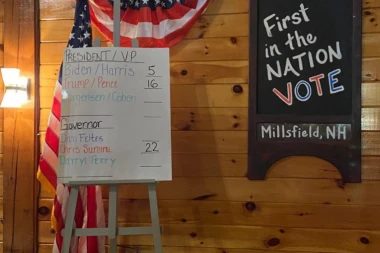 PRESIDENT / VP
Biden / Harris 5
Trump / Pence 16
Jorgensen / Cohen
Governor
Dan Feltes
Chris Sununu 22
Darryl Perry
First
in the
NATION
VOTE
Millsfield, NH